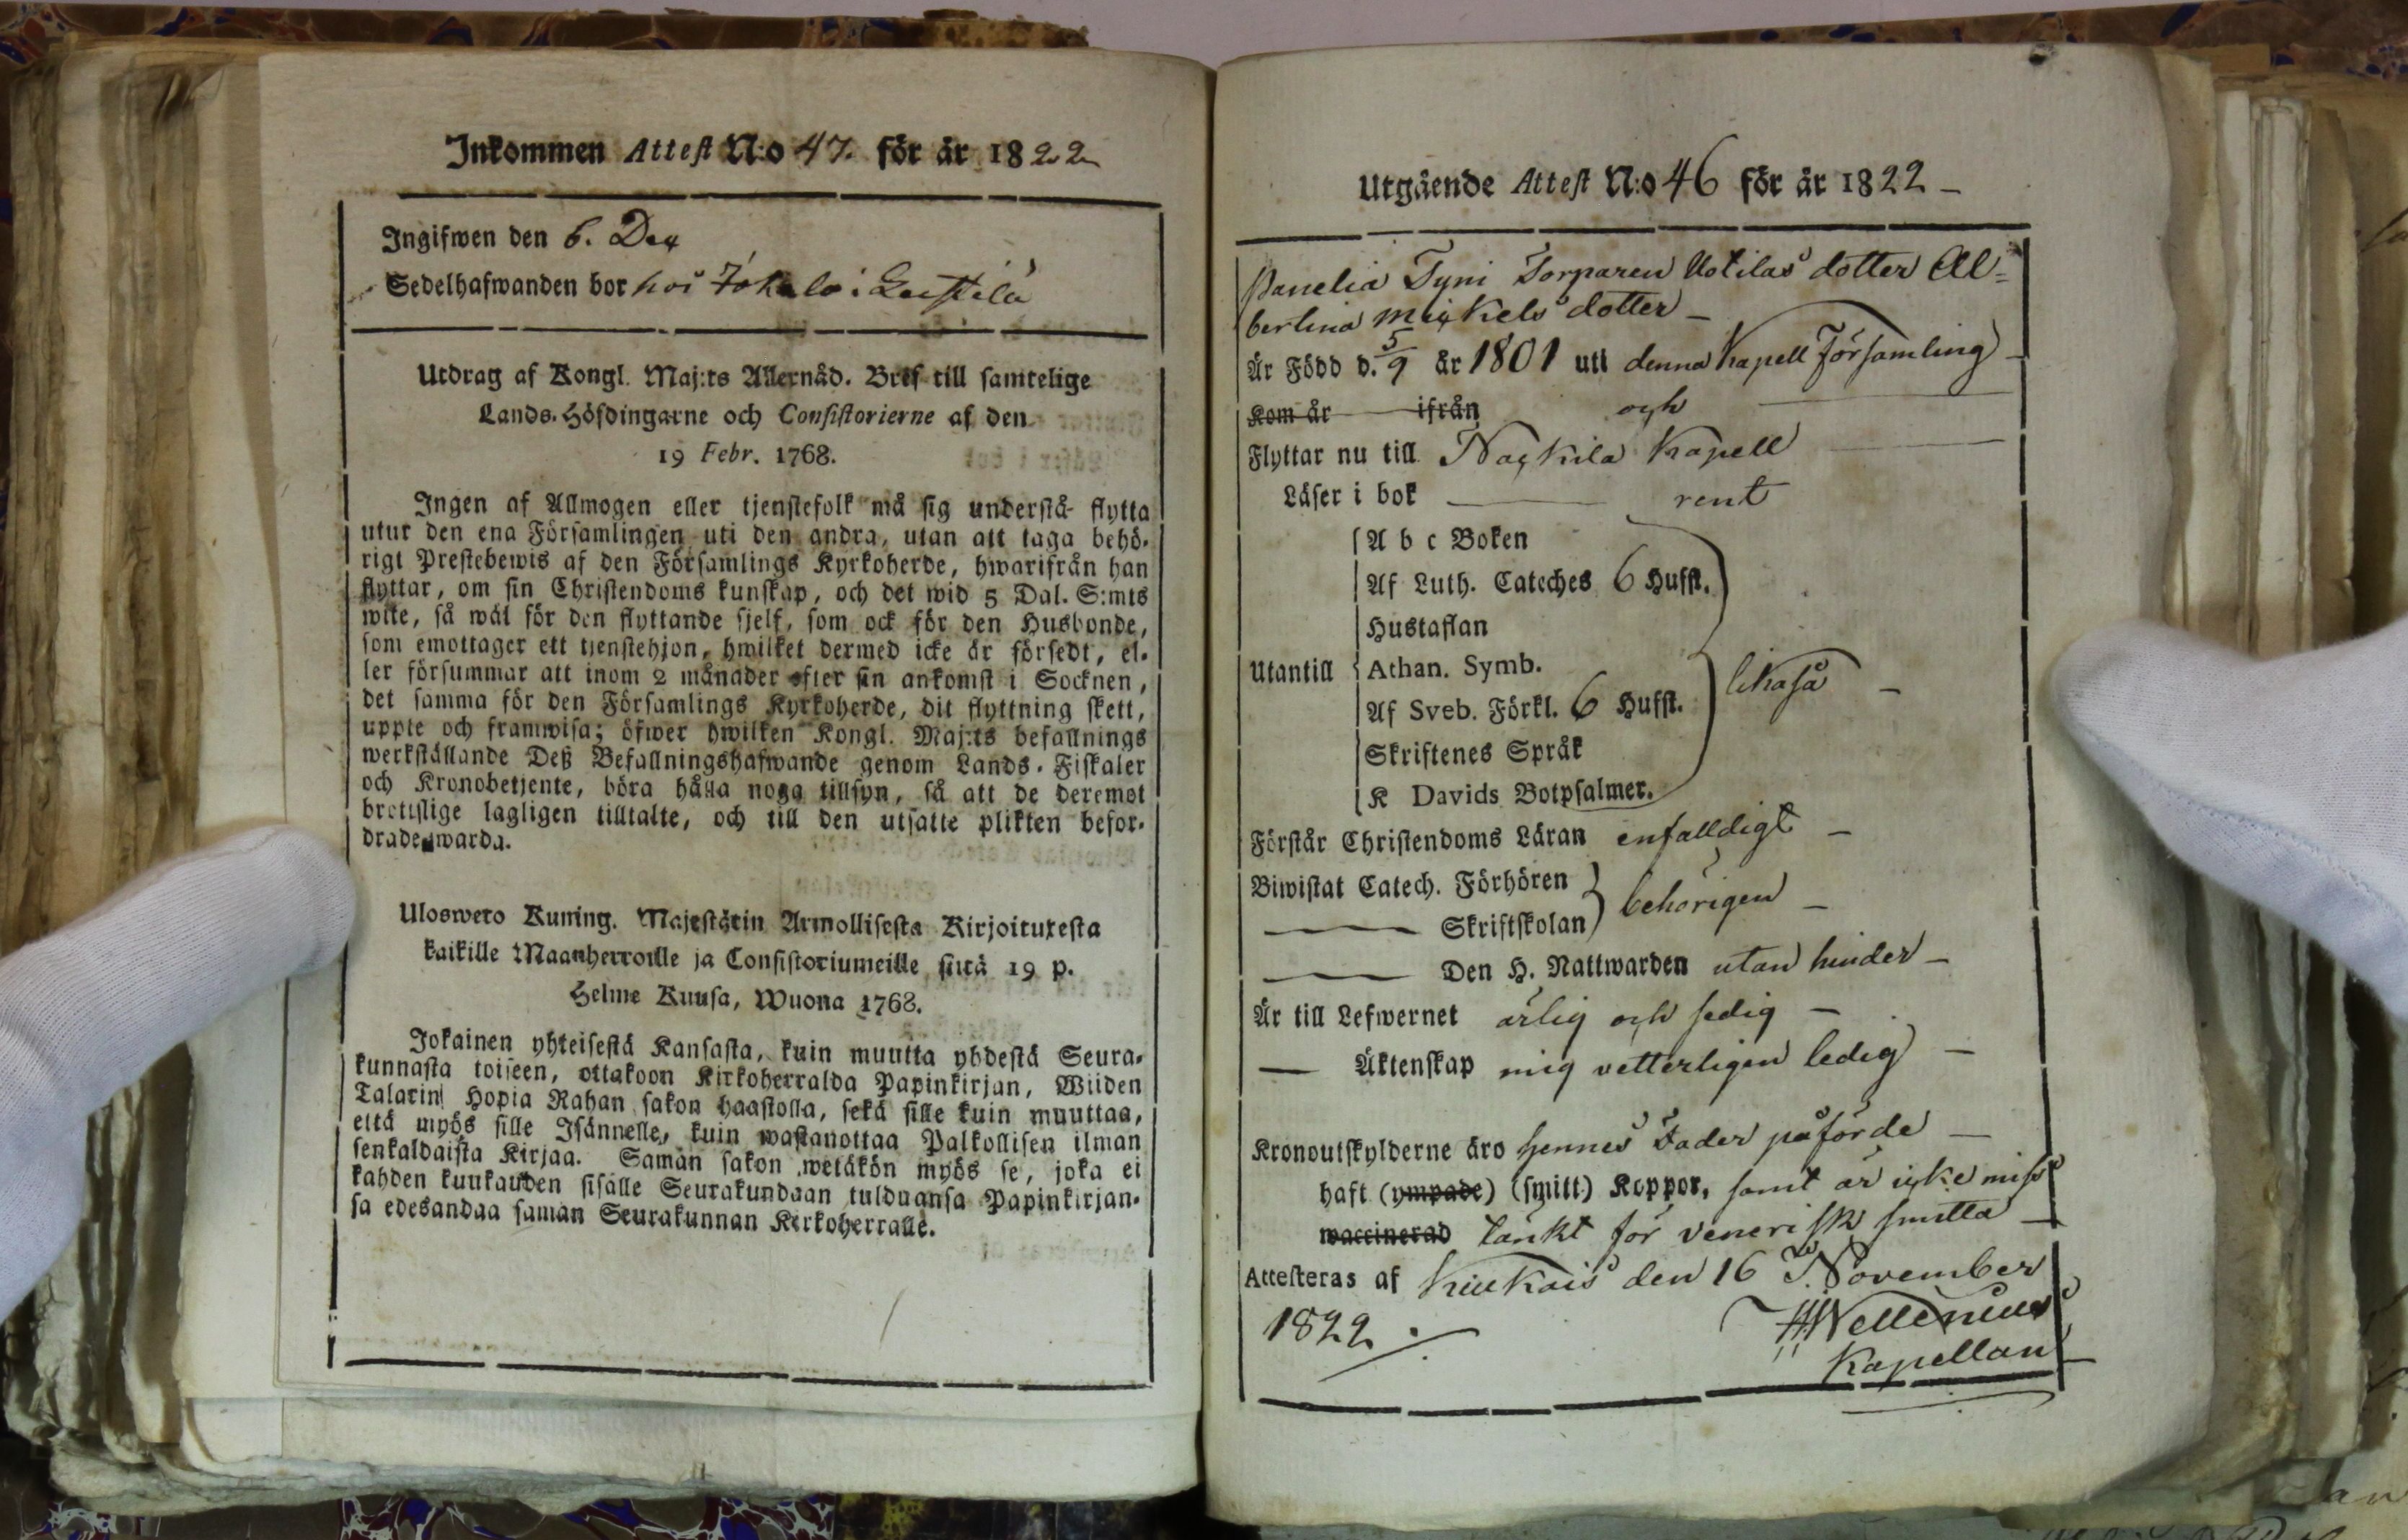 Inkommen Attest N:o 47. för år 1822
Ingifwen den 6. Dec
Sedelhafwanden bor hos Jokela i Leistilä
Utdrag af Kongl. Maj:ts Allernåd. Bref till samtelige
Lands-Höfdingarne och Consistorierne af den
19 Febr. 1768.
Ingen af Allmogen eller tjenstefolk må sig understå flytta
utur den ena Församlingen uti den andra, utan att taga behö-
rigt Prestebewis af den Församlings Kyrkoherde, hwarifrån han
flyttar, om sin Christendoms kunskap, och det wid 5 Dal. S:mts
wite, så wäl för den flyttande sjelf, som ock för den Husbonde,
som emottager ett tjenstehjon, hwilket dermed icke är försedt, el-
ler försummar att inom 2 månader efter sin ankomst i Socknen,
det samma för den Församlings Kyrkoherde, dit flyttning skett,
uppte och framwisa; öfwer hwilken Kongl. Maj:ts befallnings
werkställande Deß Befallningshafwande genom Lands-Fiskaler
och Kronobetjente, böra hålla noga tillsyn, så att de deremot
brottslige lagligen tilltalte, och till den utsatte plikten befor-
drade warda.
Uloswero Kuning. Majestätin Armollisesta Kirjoituxesta
kaikille Maanherroille ja Consistoriumeille siitä 19 p.
Helme Kuusa, Wuona 1768.
Jokainen yhteisestä Kansasta, kuin muutta yhdestä Seura-
kunnasta toiseen, ottakoon Kirkoherralda Papinkirjan, Wiiden
Talarin Hopia Rahan sakon haastolla, sekä sille kuin muuttaa,
että myös sille Isännelle, kuin wastanottaa Palkollisen ilman
senkaldaista Kirjaa. Saman sakon wetäkön myös se, joka ei
kahden kuukauden sisälle Seurakundaan tulduansa Papinkirjan-
sa edesandaa saman Seurakunnan Kirkoherralle.
Utgående Attest N:o 46 för år 1822
Panelia Tyni Torparen Uotilas dotter Al-
bertina Mickels dotter
Är Född d. 5/9 år 1801 uti denna Kapell Församling
Kom år ifrån och
Flyttar nu till Nackila Kapell
Läser i bok rent
A b c Boken
Af Luth. Cateches 6 Hufst.
Hustaflan
Utantill Athan. Symb. likaså
Af Sveb. Förkl. 6 Hufst.
Skriftenes Språk
K Davids Botpsalmer.
Förstår Christendoms Läran enfalldigt
Biwistat Catech. Förhören behörigen
Skriftskolan
Den H. Nattwarden utan hinder
Är till Lefwernet ärlig och sedig
Äktenskap mig vetterligen ledig
Kronoutskylderne äro hennes Fader påförde
haft (ympade) (smitt) Koppor, samt är icke miss
waccinerad tänkt för venerisk smitta
Attesteras af Kiukais den 16 November
1822. HWellenius
Kapellan